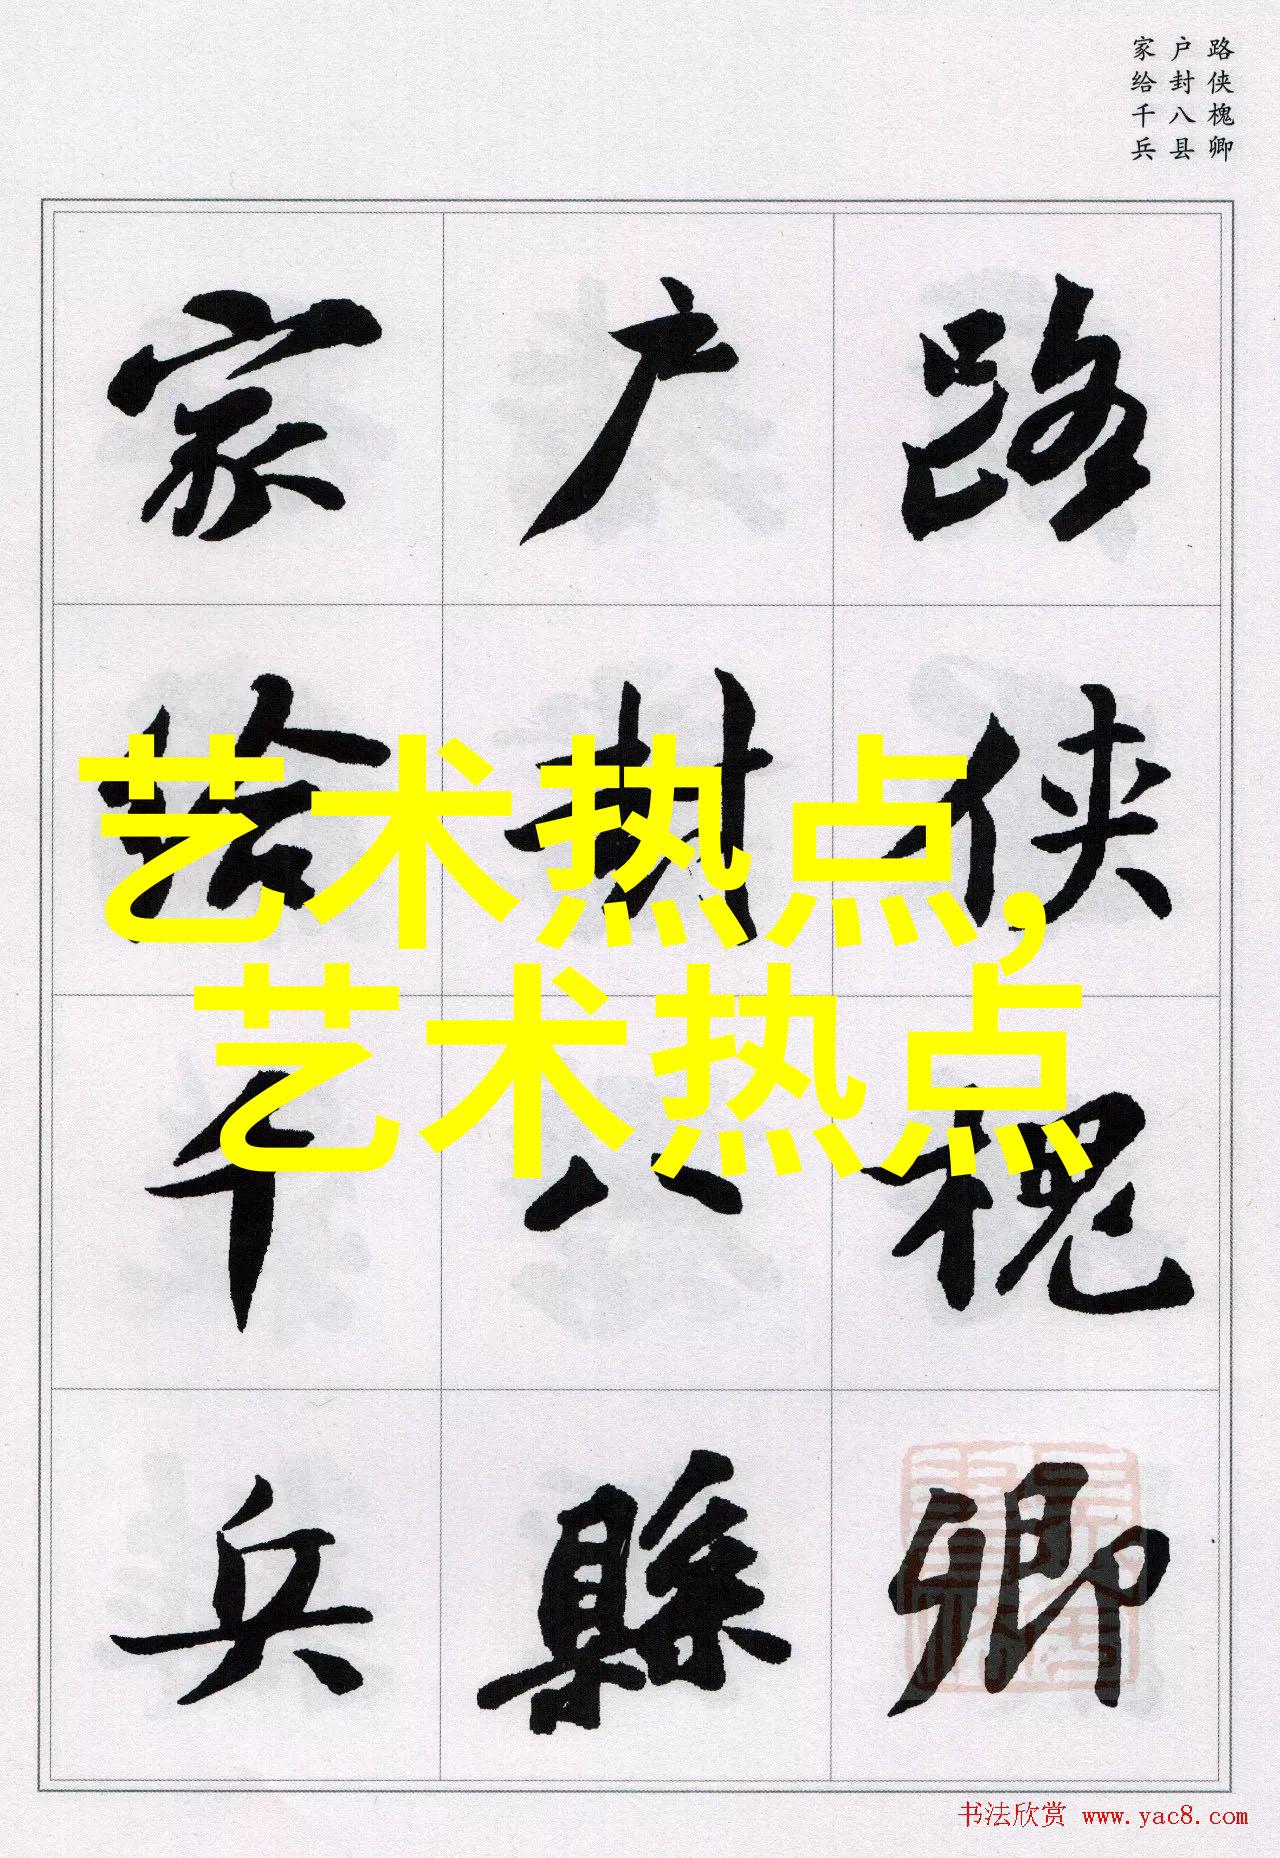 路侠槐卿
户封八县
家给千兵
路侠槐卿
户封八縣
家给千兵
艺术热点,
艺术热点
书法欣赏 www.yac8.com